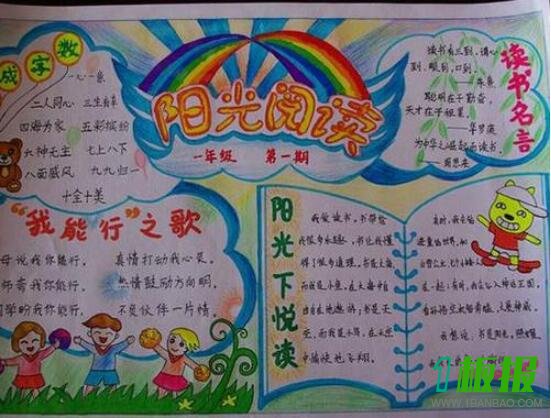 成字数
一心一意
二人同心 三生有幸
四海为家 五彩缤纷
六神无主 七上八下
八面威风 九九归一
十全十美
阳光阅读
一年级 第一期
读书名言
读书有三到,谓心
到,眼到,口到。
——朱熹
聪明在于勤奋,
天才在于积累。
——华罗庚
为中华之崛起而读书。
——周恩来
“我能行”之歌
母说我你能行,
真情打动我心灵。
师需我你能行,
热情鼓励方向明。
同学盼我你能行,
不负伙伴一片情。
阳光下悦读
我爱读书,书带给
我很多乐趣,书让我懂
得了很多道理。书是大海,
而我是小鱼,在大海
由自在地遨游;书是天
空,而我是小鸟,在天空
中愉快地飞翔。
有时,我会
我想说:书是阳光,照耀
1板报
WWW.1BANBAO.COM